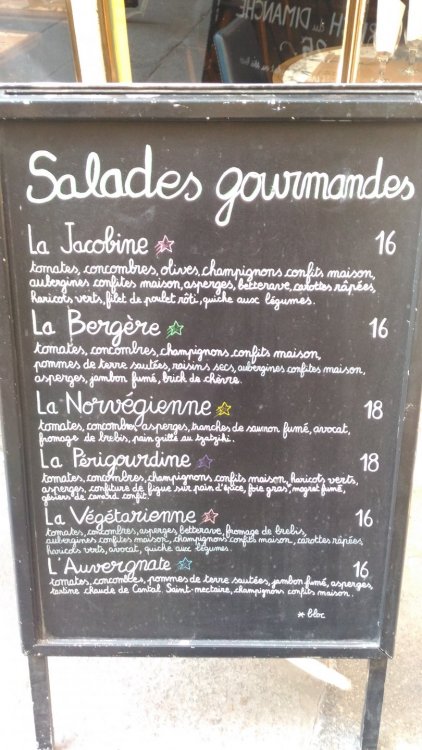 H du DIMANCHE
Salades gourmandes
La Jacobine 16
tomates, concombres, olives, champignons confits maison,
aubergines confites maison, asperges, betterave, carottes râpées,
haricots verts, filet de poulet rôti, quiche aux légumes.
La Bergère 16
tomates, concombres, champignons confits maison,
pommes de terre sautées, raisins secs, aubergines confites maison,
asperges, jambon fumé, brick de chèvre.
La Norvégienne 18
tomates, concombres, asperges, tranches de saumon fumé, avocat,
fromage de brebis, pain grillé au tzatziki.
La Périgourdine 18
tomates, concombres, champignons confits maison, haricots verts,
asperges, confiture de figue sur pain d'épice, foie gras*, magret fumé,
gésiers de canard confit.
La Végétarienne 16
tomates, concombres, asperges, betterave, fromage de brebis,
aubergines confites maison, champignons confits maison, carottes râpées,
haricots verts, avocat, quiche aux légumes.
L'Auvergnate 16
tomates, concombres, pommes de terre sautées, jambon fumé, asperges,
tartine chaude de Cantal. Saint-nectaire, champignons confits maison.
* bloc